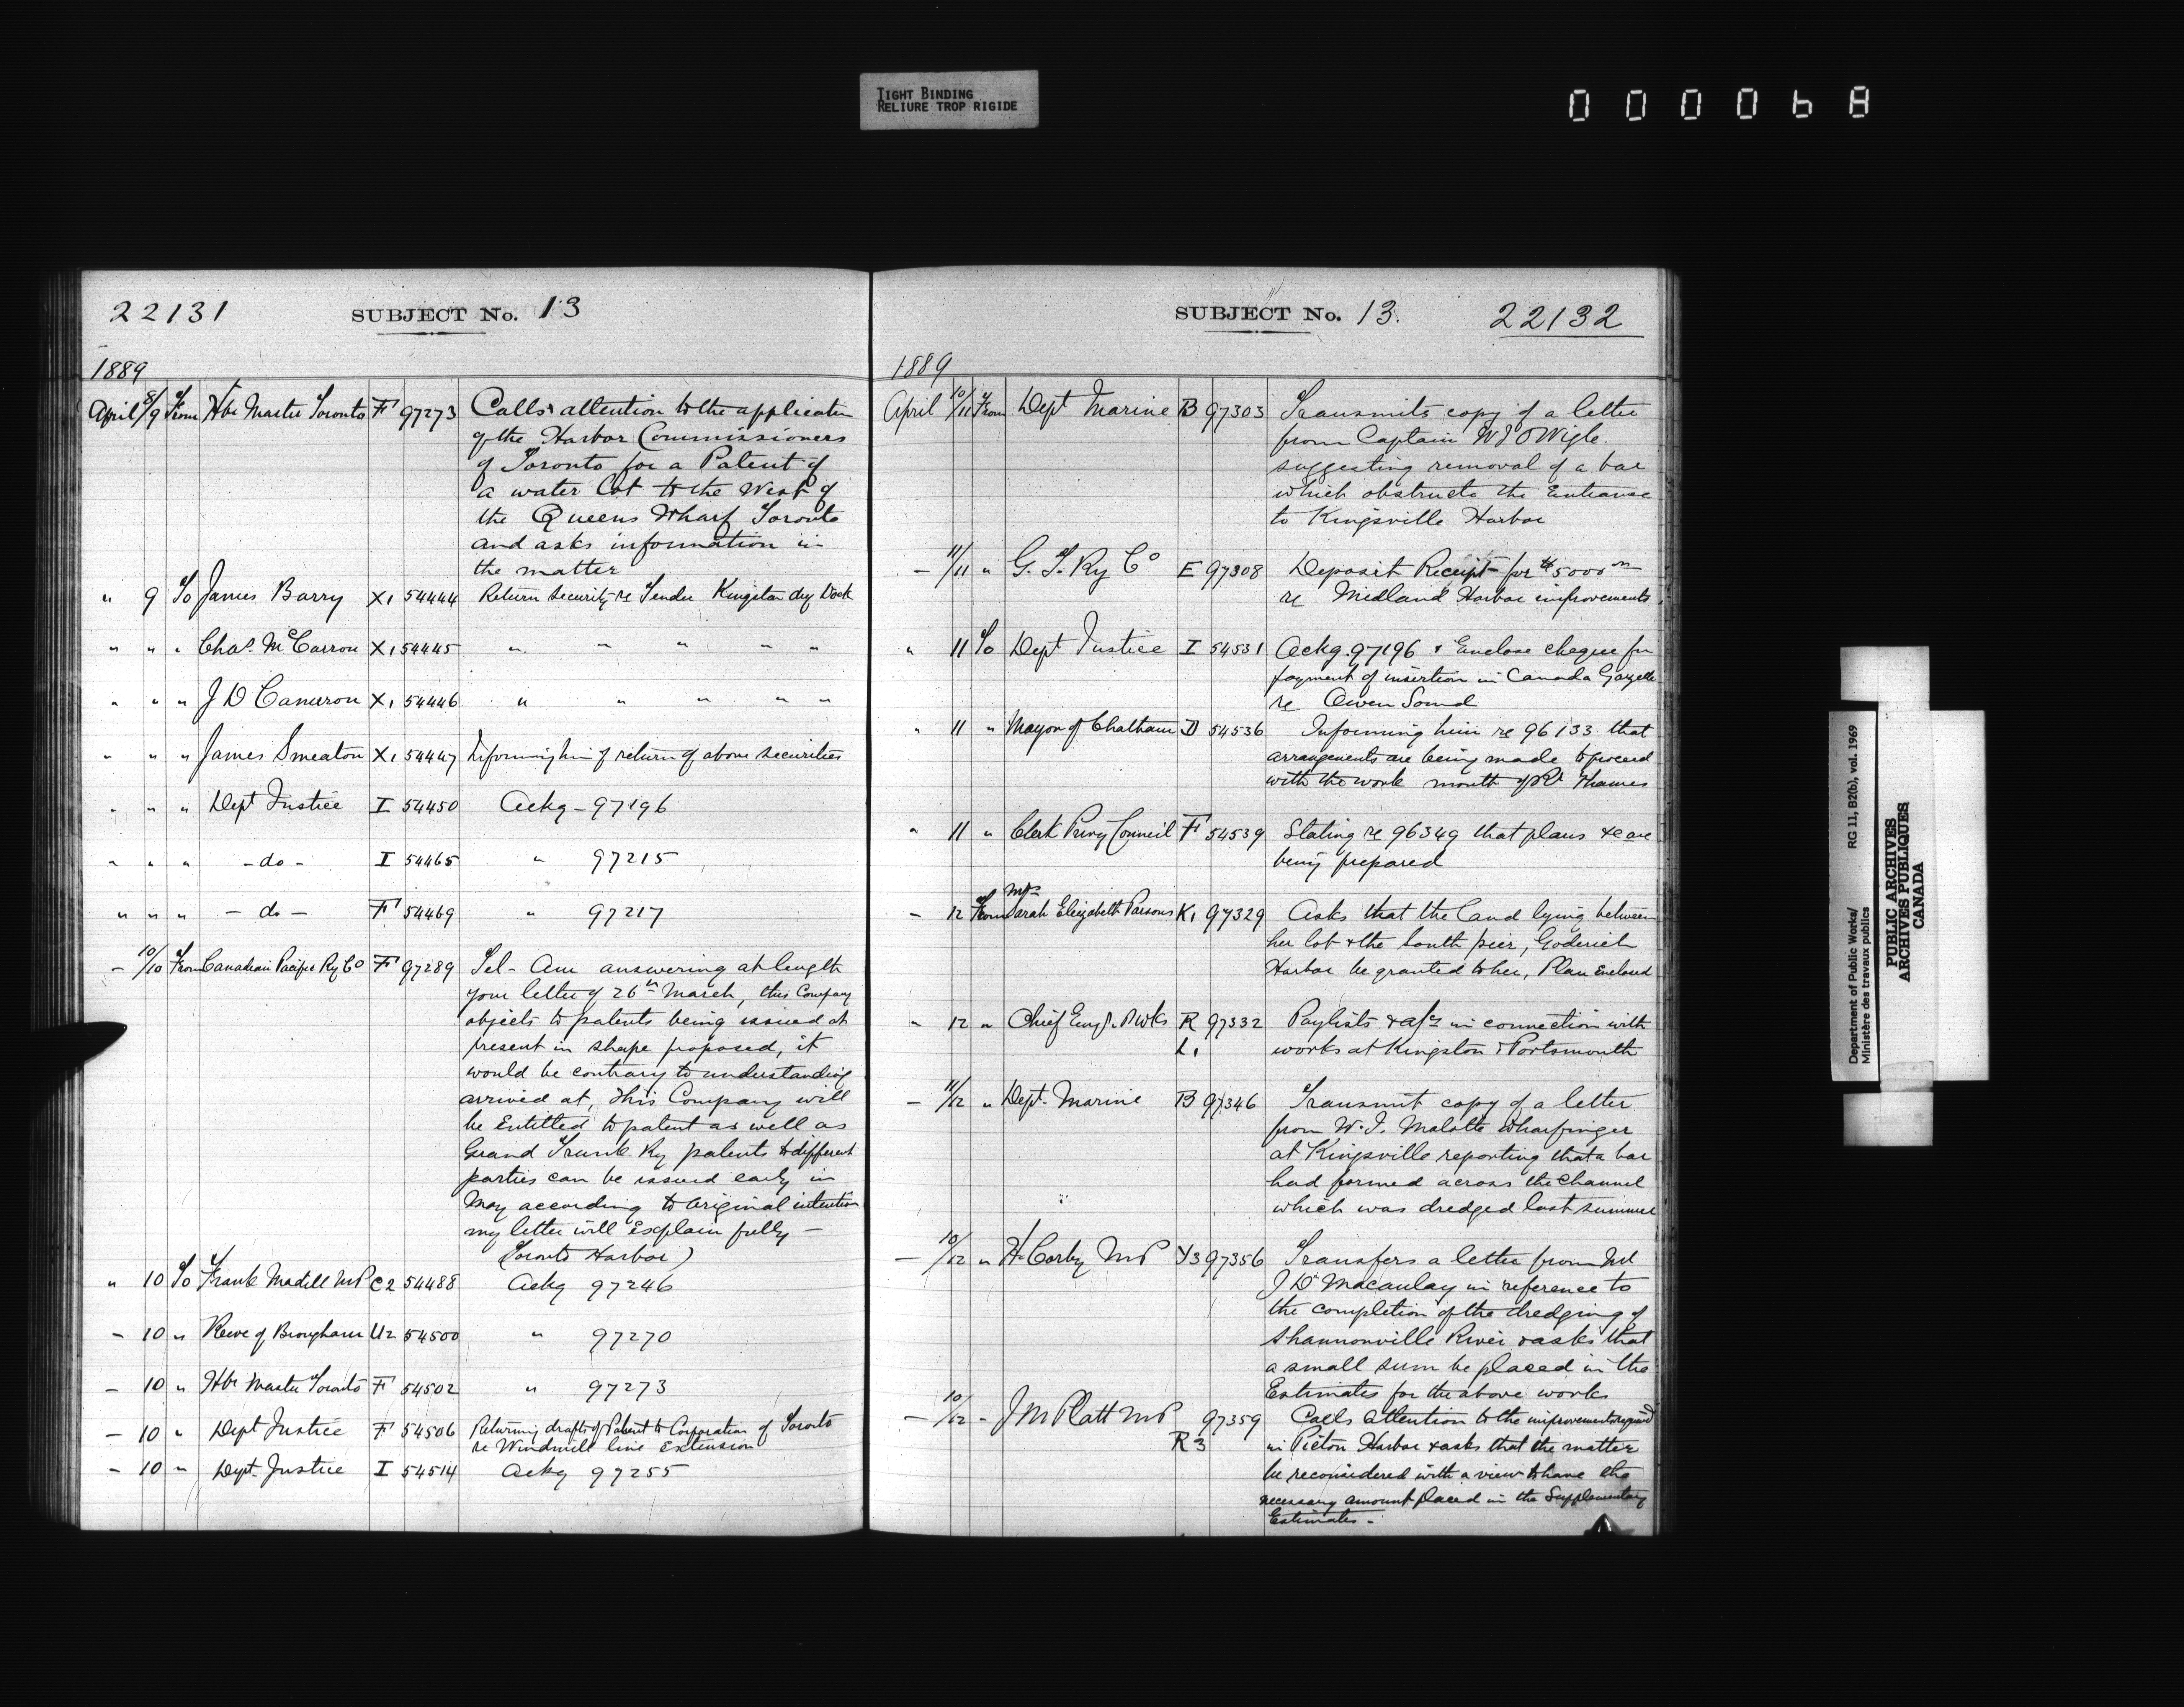 TIGHT BINDING
RELIURE TROP RIGIDE
000068
22131 SUBJECT No. 13
1889
April 8/9 From Hbr Master Toronto F 97273 Calls attention to the application
of the Harbor Commissioners
of Toronto for a Patent of
a water lot to the West of
the Queens Wharf Toronto
and asks information in
the matter
" 9 To James Barry X1 54444 Return security re Tender Kingston dry Dock
" " " Chas. McCarron X1 54445 " " " " "
" " " J D Cameron X1 54446 " " " " "
" " " James Smeaton X1 54447 Informing him of return of above securities
" " " Dept Justice I 54450 Ackg - 97196
" " " - do - I 54465 " 97215
" " " - do - F 54469 " 97217
- 10/10 From Canadian Pacific Ry Co F 97289 Tel - Am answering at length
your letter of 26th March, this Company
objects to patents being issued at
present in shape proposed, it
would be contrary to understanding
arrived at, This Company will
be Entitled to patent as well as
Grand Trunk Ry patents to different
parties can be issued early in
May according to original intention
my letter will Explain fully -
(Toronto Harbor)
" 10 To Frank Madill MP C2 54488 Ackg 97246
- 10 " Reeve of Brougham U2 54500 " 97270
- 10 " Hbr Master Toronto F 54502 " 97273
- 10 " Dept Justice F 54506 Returning drafts of Patent to Corporation of Toronto
re Windmill line Extension
- 10 " Dept. Justice I 54514 Ackg 97255
SUBJECT No. 13. 22132
1889
April 10/11 From Dept Marine B 97303 Transmits copy of a letter
from Captain Wigle
suggesting removal of a bar
which obstructs the Entrance
to Kingsville Harbor
- 11/11 " G. T. Ry Co E 97308 Deposit Receipt for $5000
re Midland Harbor improvements
" 11 To Dept Justice I 54531 Ackg. 97196 & Enclose cheque for
payment of insertion in Canada Gazette
re Owen Sound
" 11 " Mayor of Chatham D 54536 Informing him re 96133 that
arrangements are being made to proceed
with the work mouth of Rr Thames
" 11 " Clerk Privy Council F 54539 Stating re 96349 that plans &c are
being prepared
Mrs
- 12 From Sarah Elizabeth Parsons K1 97329 Asks that the land lying between
her lot & the South pier, Goderich
Harbor be granted to her, Plan Enclosed
" 12 " Chief Engr. P Wks R 97332 Paylists & a/cs in connection with
L1 works at Kingston & Portsmouth
- 11/12 " Dept. Marine B 97346 Transmit copy of a letter
from W. J. Malotte Wharfinger
at Kingsville reporting that a bar
had formed across the channel
which was dredged last summer
- 10/12 " H Corby MP Y3 97356 Transfers a letter from Mr
J D Macaulay in reference to
the completion of the dredging of
Shannonville River & asks that
a small sum be placed in the
Estimates for the above works
- 10/12 - J M Platt MP 97359 Calls attention to the improvements required
R3 in Picton Harbor & asks that the matter
be reconsidered with a view to have the
necessary amount placed in the Supplementary
Estimates -
Department of Public Works/ RG 11, B2(b), vol. 1969
Ministère des travaux publics
PUBLIC ARCHIVES
ARCHIVES PUBLIQUES
CANADA